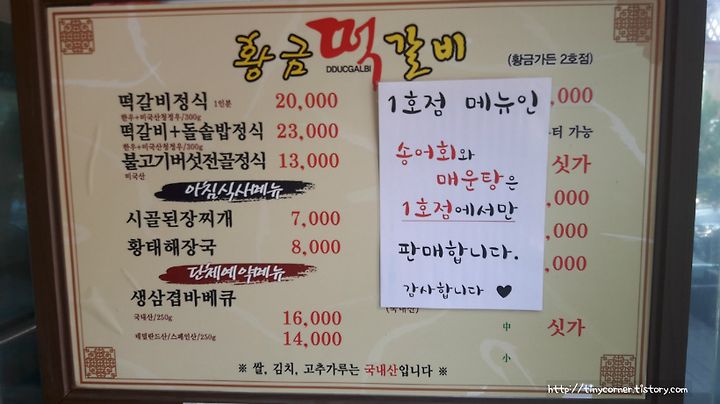 황금떡갈비
DDUCGALBI
(황금가든 2호점)
떡갈비정식 1인분 20,000
한우+미국산청정우/300g
떡갈비+돌솥밥정식 23,000
한우+미국산청정우/300g
불고기버섯전골정식 13,000
미국산
아침식사메뉴
시골된장찌개 7,000
황태해장국 8,000
단체예약메뉴
생삼겹바베큐
국내산/250g 16,000
네덜란드산/스페인산/250g 14,000
1호점 메뉴인
송어회와
매운탕은
1호점에서만
판매합니다.
감사합니다 ♥
,000
터 가능
싯가
,000
,000
,000
(국내산)
中 싯가
小
※ 쌀, 김치, 고추가루는 국내산입니다 ※
http://tinycorner.tistory.com